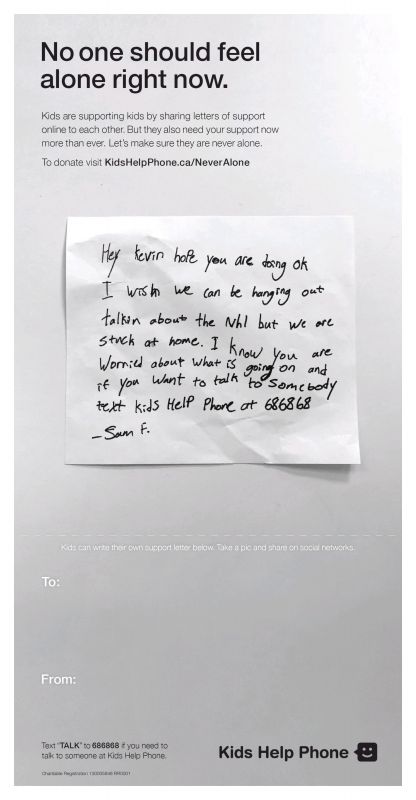 No one should feel
alone right now.
Kids are supporting kids by sharing letters of support
online to each other. But they also need your support now
more than ever. Let's make sure they are never alone.
To donate visit KidsHelpPhone.ca/NeverAlone
Hey Kevin hope you are doing ok
I wish we can be hanging out
talkin about the Nhl but we are
stuck at home. I know you are
Worried about what is going on and
if you want to talk to somebody
text kids Help Phone at 686868
-Sam F.
Kids can write their own support letter below. Take a pic and share on social networks.
To:
From:
Text "TALK" to 686868 if you need to
talk to someone at Kids Help Phone.
Kids Help Phone